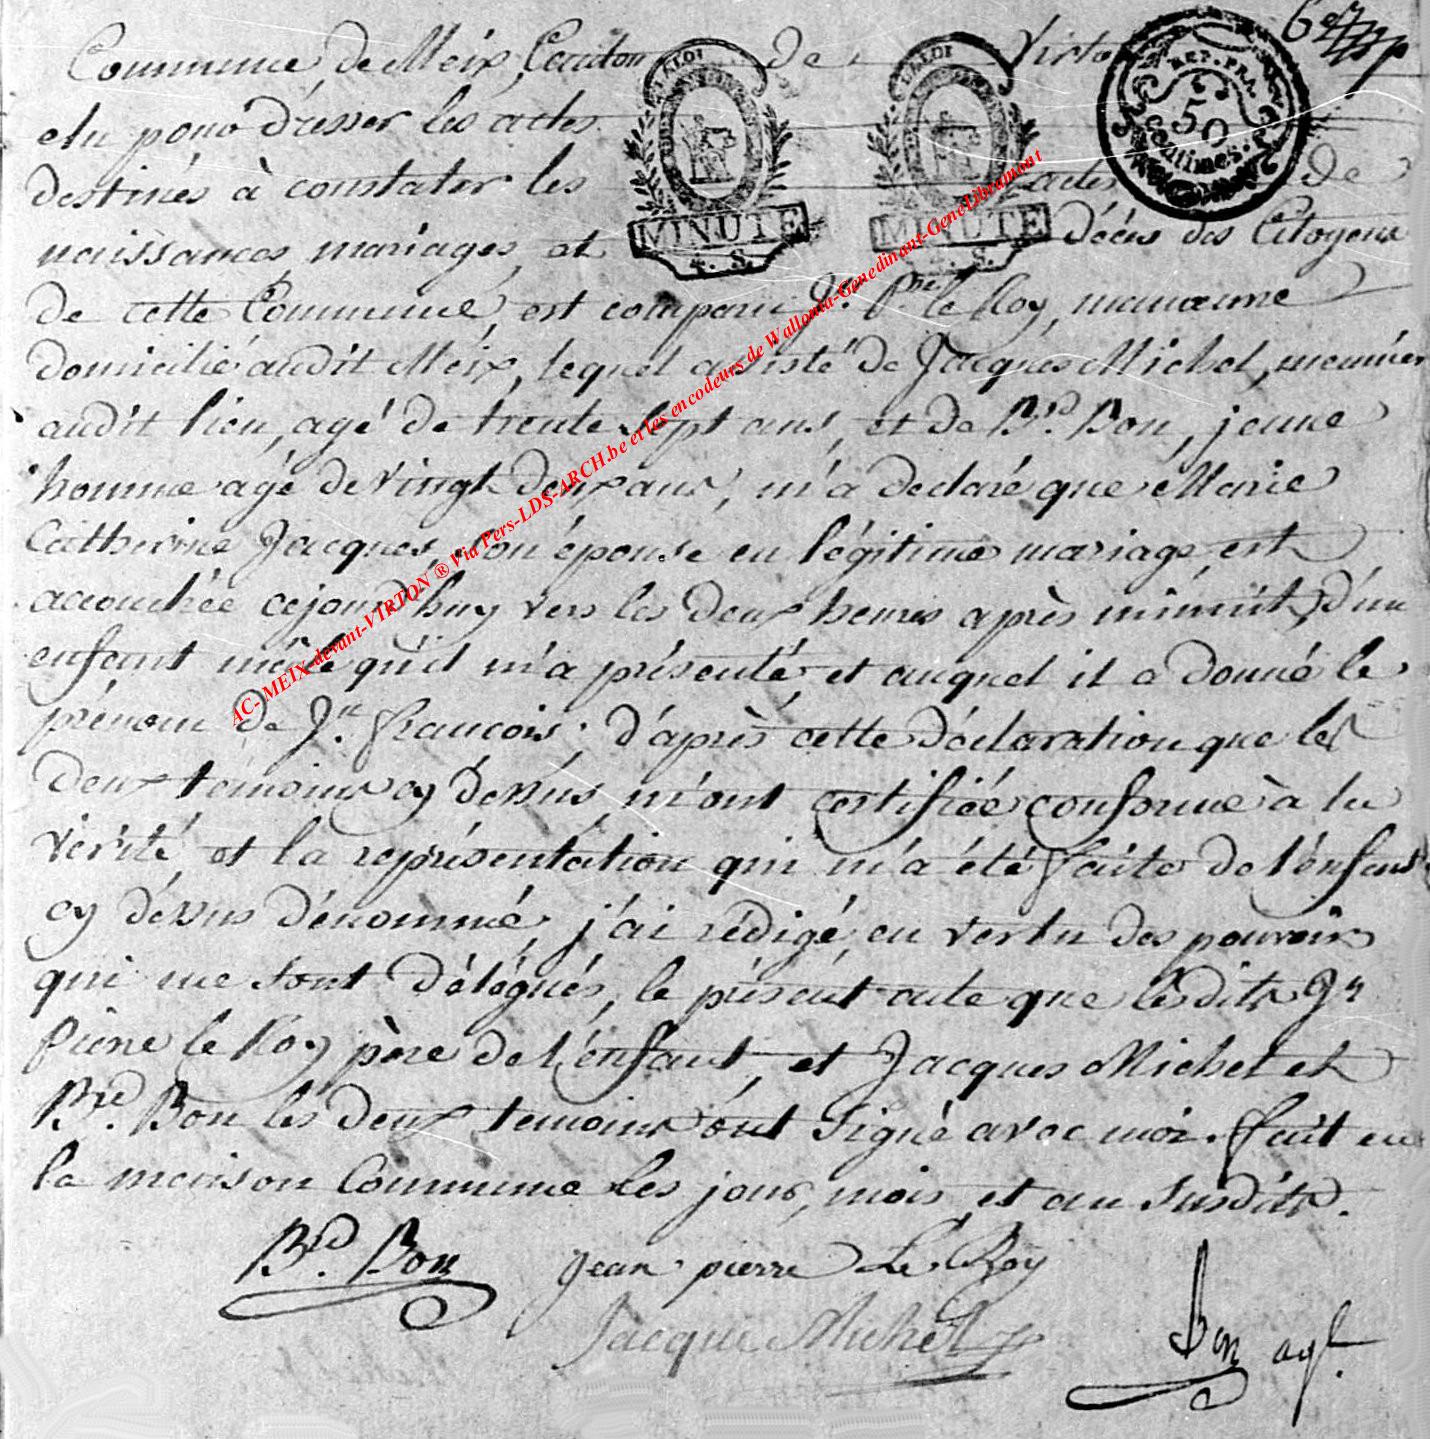 Commune de Meix, Canton de Virton
elu pour dresser les actes
destinés à constater les actes de
naissances mariages, et Décès des Citoyens
de cette Commune, est comparu Jn. Pre. le Roy, manœuvre
domicilié audit Meix, lequel assisté de Jacques Michel, meunier
audit lieu, agé de trente Sept ans, et de Brd. Bon, jeune
homme agé de vingt deux ans, m'a declaré que Marie
Catherine Jacques, Son épouse en légitime mariage, est
accouchée cejourd'huy vers les deux heures après minuit, d'un
enfant mâle qu'il m'a présenté et auquel il a donné le
prénom de Jn. françois; d'après cette déclaration que les
deux témoins cy dessus, m'ont certifiée conforme à la
vérité et la représentation qui m'a été faite de l'enfant
cy déssus dénommé, j'ai rédigé, en vertu des pouvoirs
qui me sont délégués, le présent acte que lesdits Jn
Pierre le Roy père de l'enfant, et Jacques Michel et
Brd. Bon les deux temoins ont Signé avec moi. ffait en
la maison Commune les jour, mois, et an susdits.
Brd. Bon Jean pierre Le Roy
Jacque Michel
Bon agt.
MINUTE
4. S.
MINUTE
4. S.
REP. FRA.
50
Centimes.
AC- MEIX-devant-VIRTON ® Via Pers-LDS-ARCH.be et les encodeurs de Wallonia-Genedinant-GeneLibramont